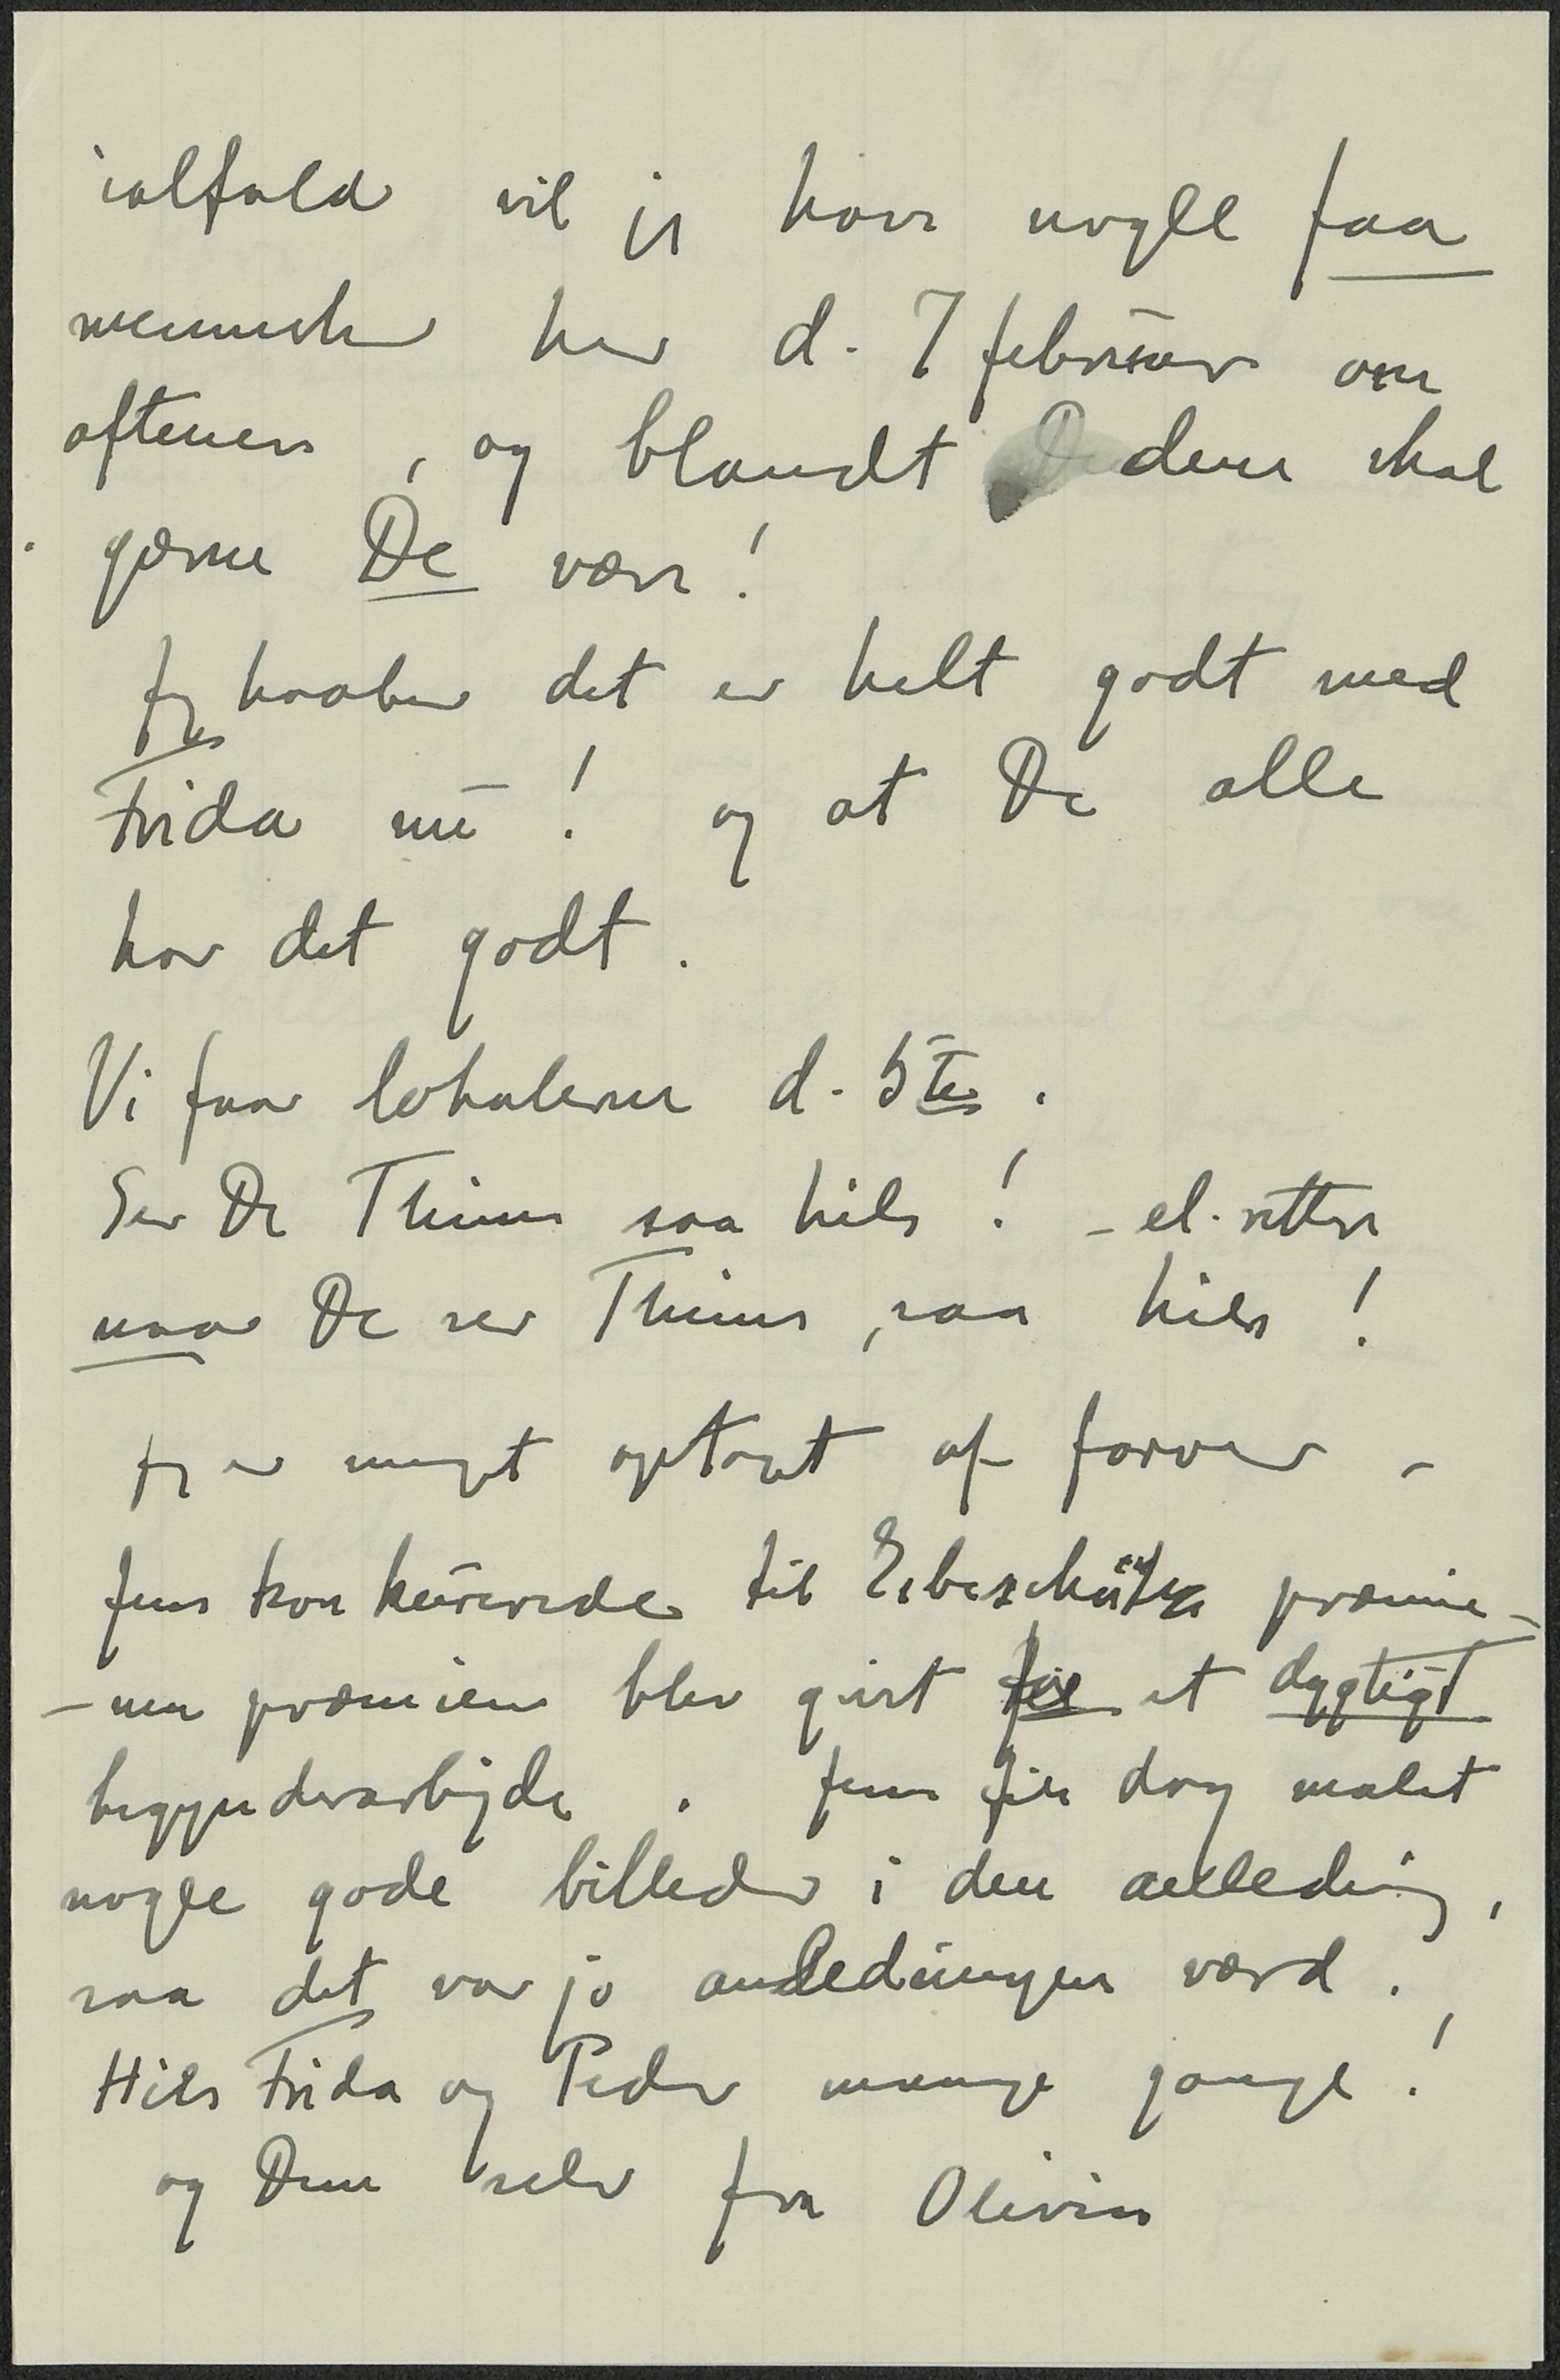 ialfald vil jeg have nogle faa
mennesker her d. 7 februar om
aftenen, og blandt dem skal
gærne De være!
Jeg haaber det er helt godt med
Frida nu! og at De alle
har det godt.
Vi faar lokalerne d. 5te.
Ser De Thiun saa hils! - el. rettere
naar De ser Thiun, saa hils!
Jeg er meget optaget af farver -
Jens konkurerede til Eibeschütz præmie -
- men præmien blev givet for et dygtigt
begynderarbejde. Jens fik dog malet
nogle gode billeder i den anledning,
saa det var jo anledningen værd.
Hils Frida og Peder mange gange!
og Dem selv fra Olivia